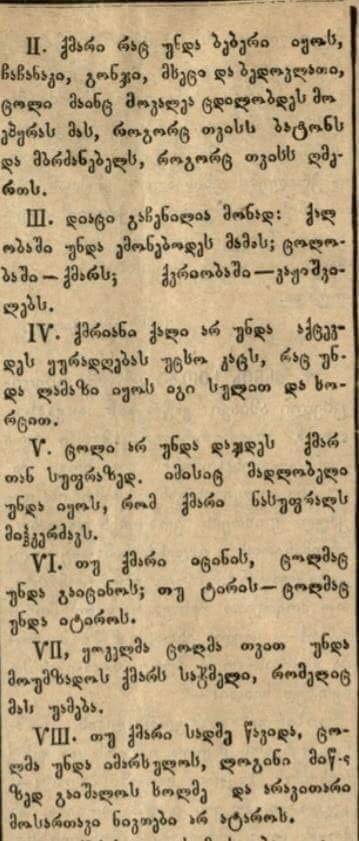 II. ქმარი რაც უნდა ბებერი იყოს,
ჩაჩანაკი, გონჯი, მხეცი და ბედოვლათი,
ცოლი მაინც მოვალეა ცდილობდეს მო
ეშუროს მას, როგორც თვისს ბატონს
და მბრძანებელს, როგორც თვისს ღმე-
რთს.
III. დიაცი გაჩენილია მონად: ქალ
ობაში უნდა ემონებოდეს მამას; ცოლო-
ბაში — ქმარს; ქვრიობაში — ვაჟიშვი-
ლებს.
IV. ქმრიანი ქალი არ უნდა აქცევ-
დეს ყურადღებას უცხო კაცს, რაც უნ-
და ლამაზი იყოს იგი სულით და ხო-
რცით.
V. ცოლი არ უნდა დაჯდეს ქმარ
თან სუფრაზედ. იმისიც მადლობელი
უნდა იყოს, რომ ქმარი ნასუფრალს
მიჰკერძავს.
VI. თუ ქმარი იცინის, ცოლმაც
უნდა გაიცინოს; თუ ტირის — ცოლმაც
უნდა იტიროს.
VII, ყოველმა ცოლმა თვით უნდა
მოუმზადოს ქმარს საჭმელი, რომელიც
მას უამება.
VIII. თუ ქმარი სადმე წავიდა, ცო-
ლმა უნდა იმარხულოს, ლოგინი მიწა
ზედ გაიშალოს ხოლმე და არავითარი
მოსართავი ნივთები არ ატაროს.